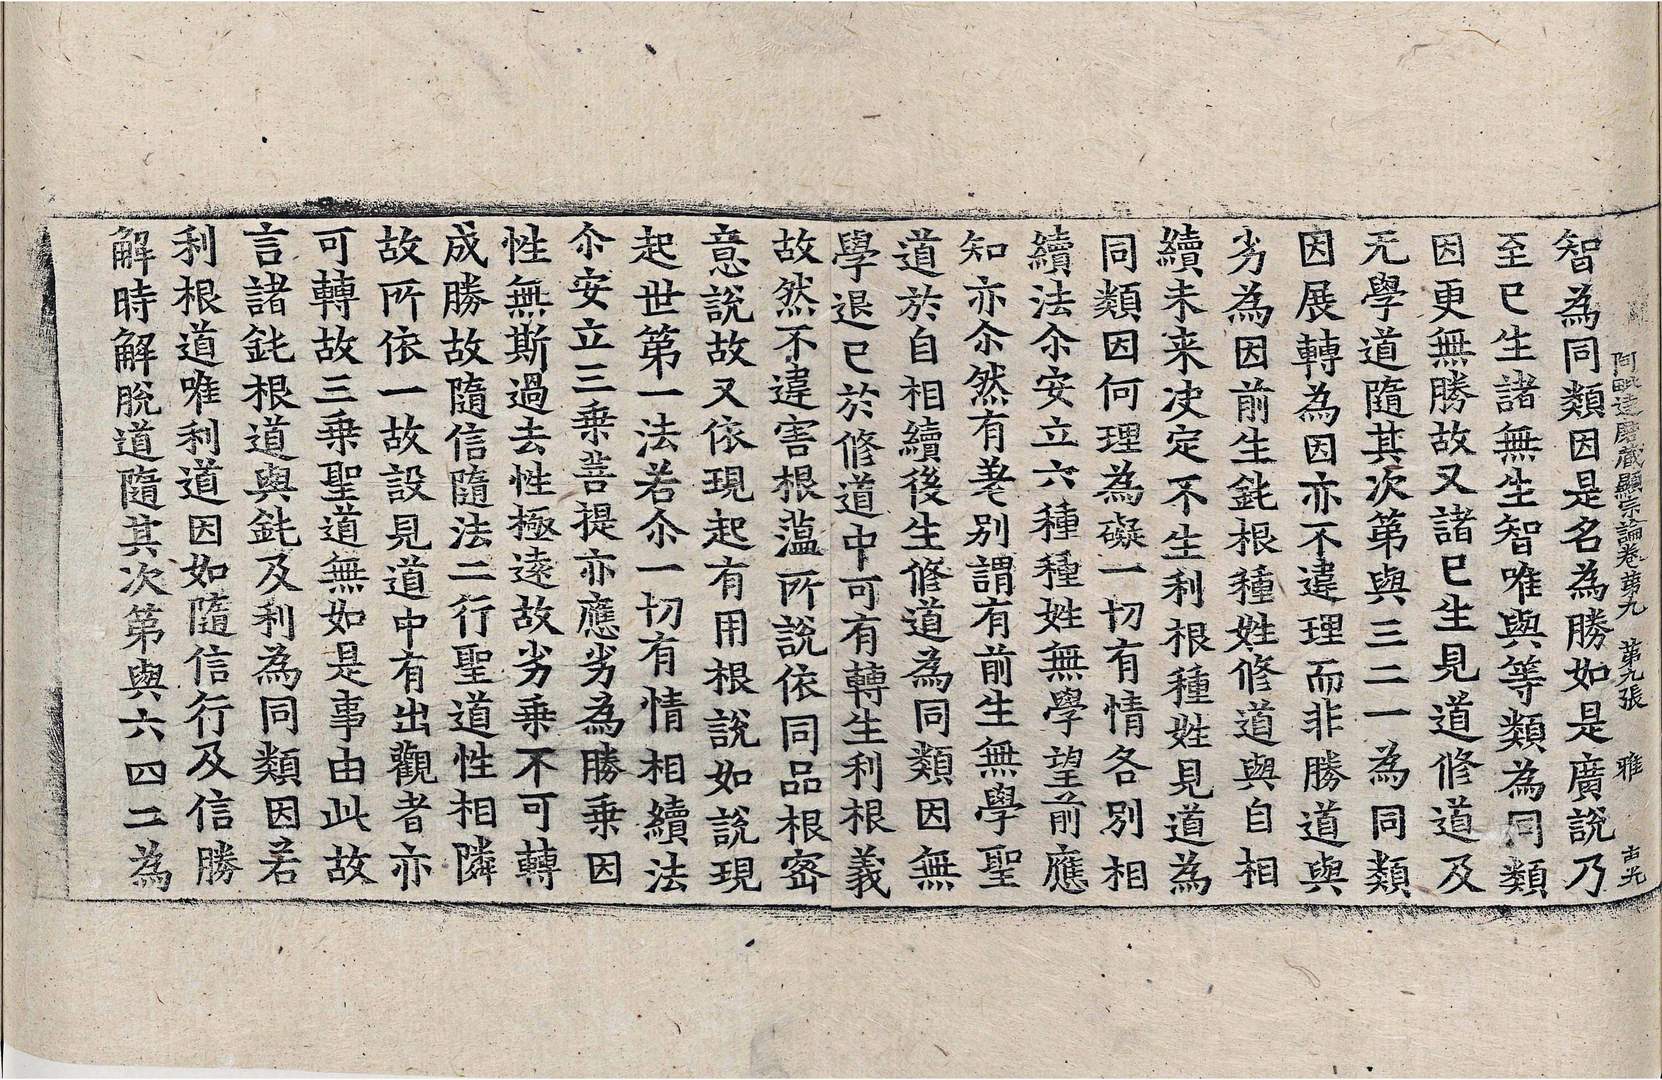 阿毗達磨藏顯宗論卷第九　第九張　雅　古光
智為同類因是名為勝如是廣說乃
至已生諸無生智唯與等類為同類
因更無勝故又諸已生見道修道及
无學道隨其次第與三二一為同類
因展轉為因亦不違理而非勝道與
劣為因前生鈍根種姓修道與自相
續未来决定不生利根種姓見道為
同類因何理為礙一切有情各別相
續法尒安立六種種姓無學望前應
知亦尒然有差別謂有前生無學聖
道於自相續後生修道為同類因無
學退已於修道中可有轉生利根義
故然不違害根蕰所說依同品根密
意說故又依現起有用根說如說現
起世第一法若尒一切有情相續法
尒安立三乗菩提亦應劣為勝乗因
性無斯過去性極遠故劣乗不可轉
成勝故隨信隨法二行聖道性相隣
故所依一故設見道中有出觀者亦
可轉故三乗聖道無如是事由此故
言諸鈍根道與鈍及利為同類因若
利根道唯利道因如隨信行及信勝
解時解脫道隨其次第與六四二為